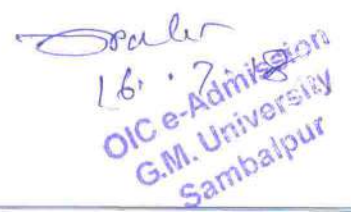 16.7.18
OIC e-Admission
G.M. University
Sambalpur